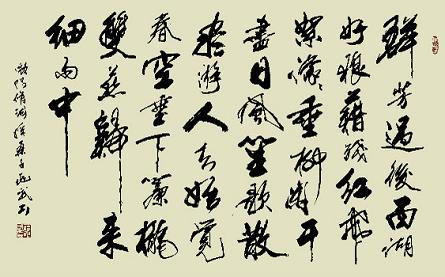 群芳過後西湖
好狼藉殘紅飛
絮濛垂柳闌干
盡日風笙歌散
盡游人去始覺
春空垂下簾櫳
雙燕歸來
細雨中
歐陽脩詞採桑子